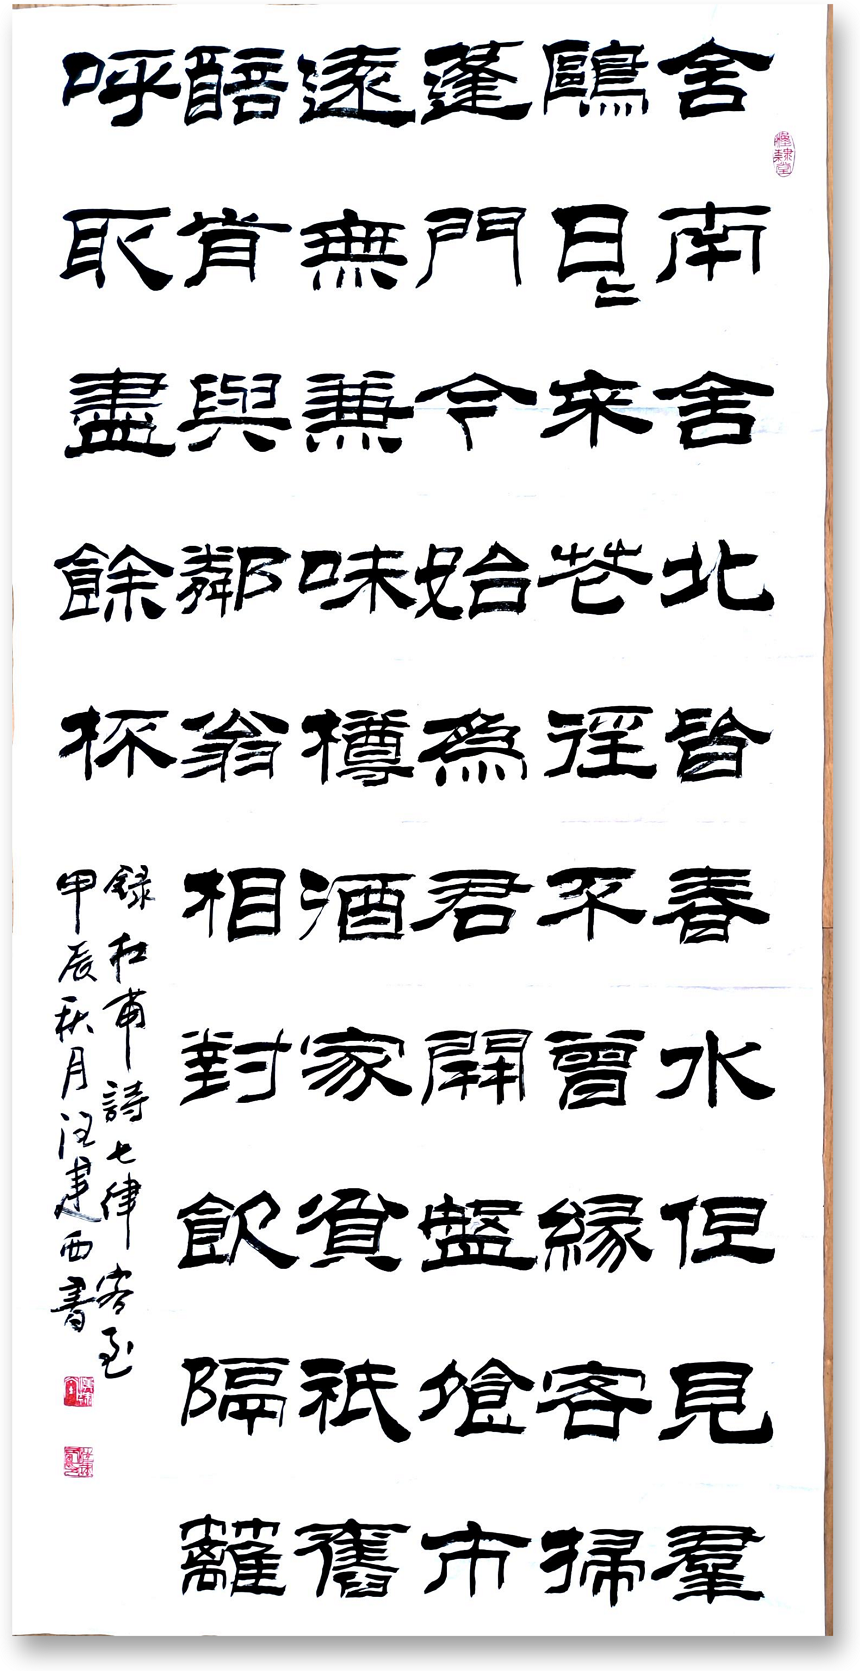 舍南舍北皆春水但見羣
鷗日〻来花徑不曾緣客掃
蓬門今始為君開盤飧市
遠無兼味樽酒家貧祇舊
醅肯與鄰翁相對飲隔籬
呼取盡餘杯
錄杜甫詩七律客至
甲辰秋月汪建西書